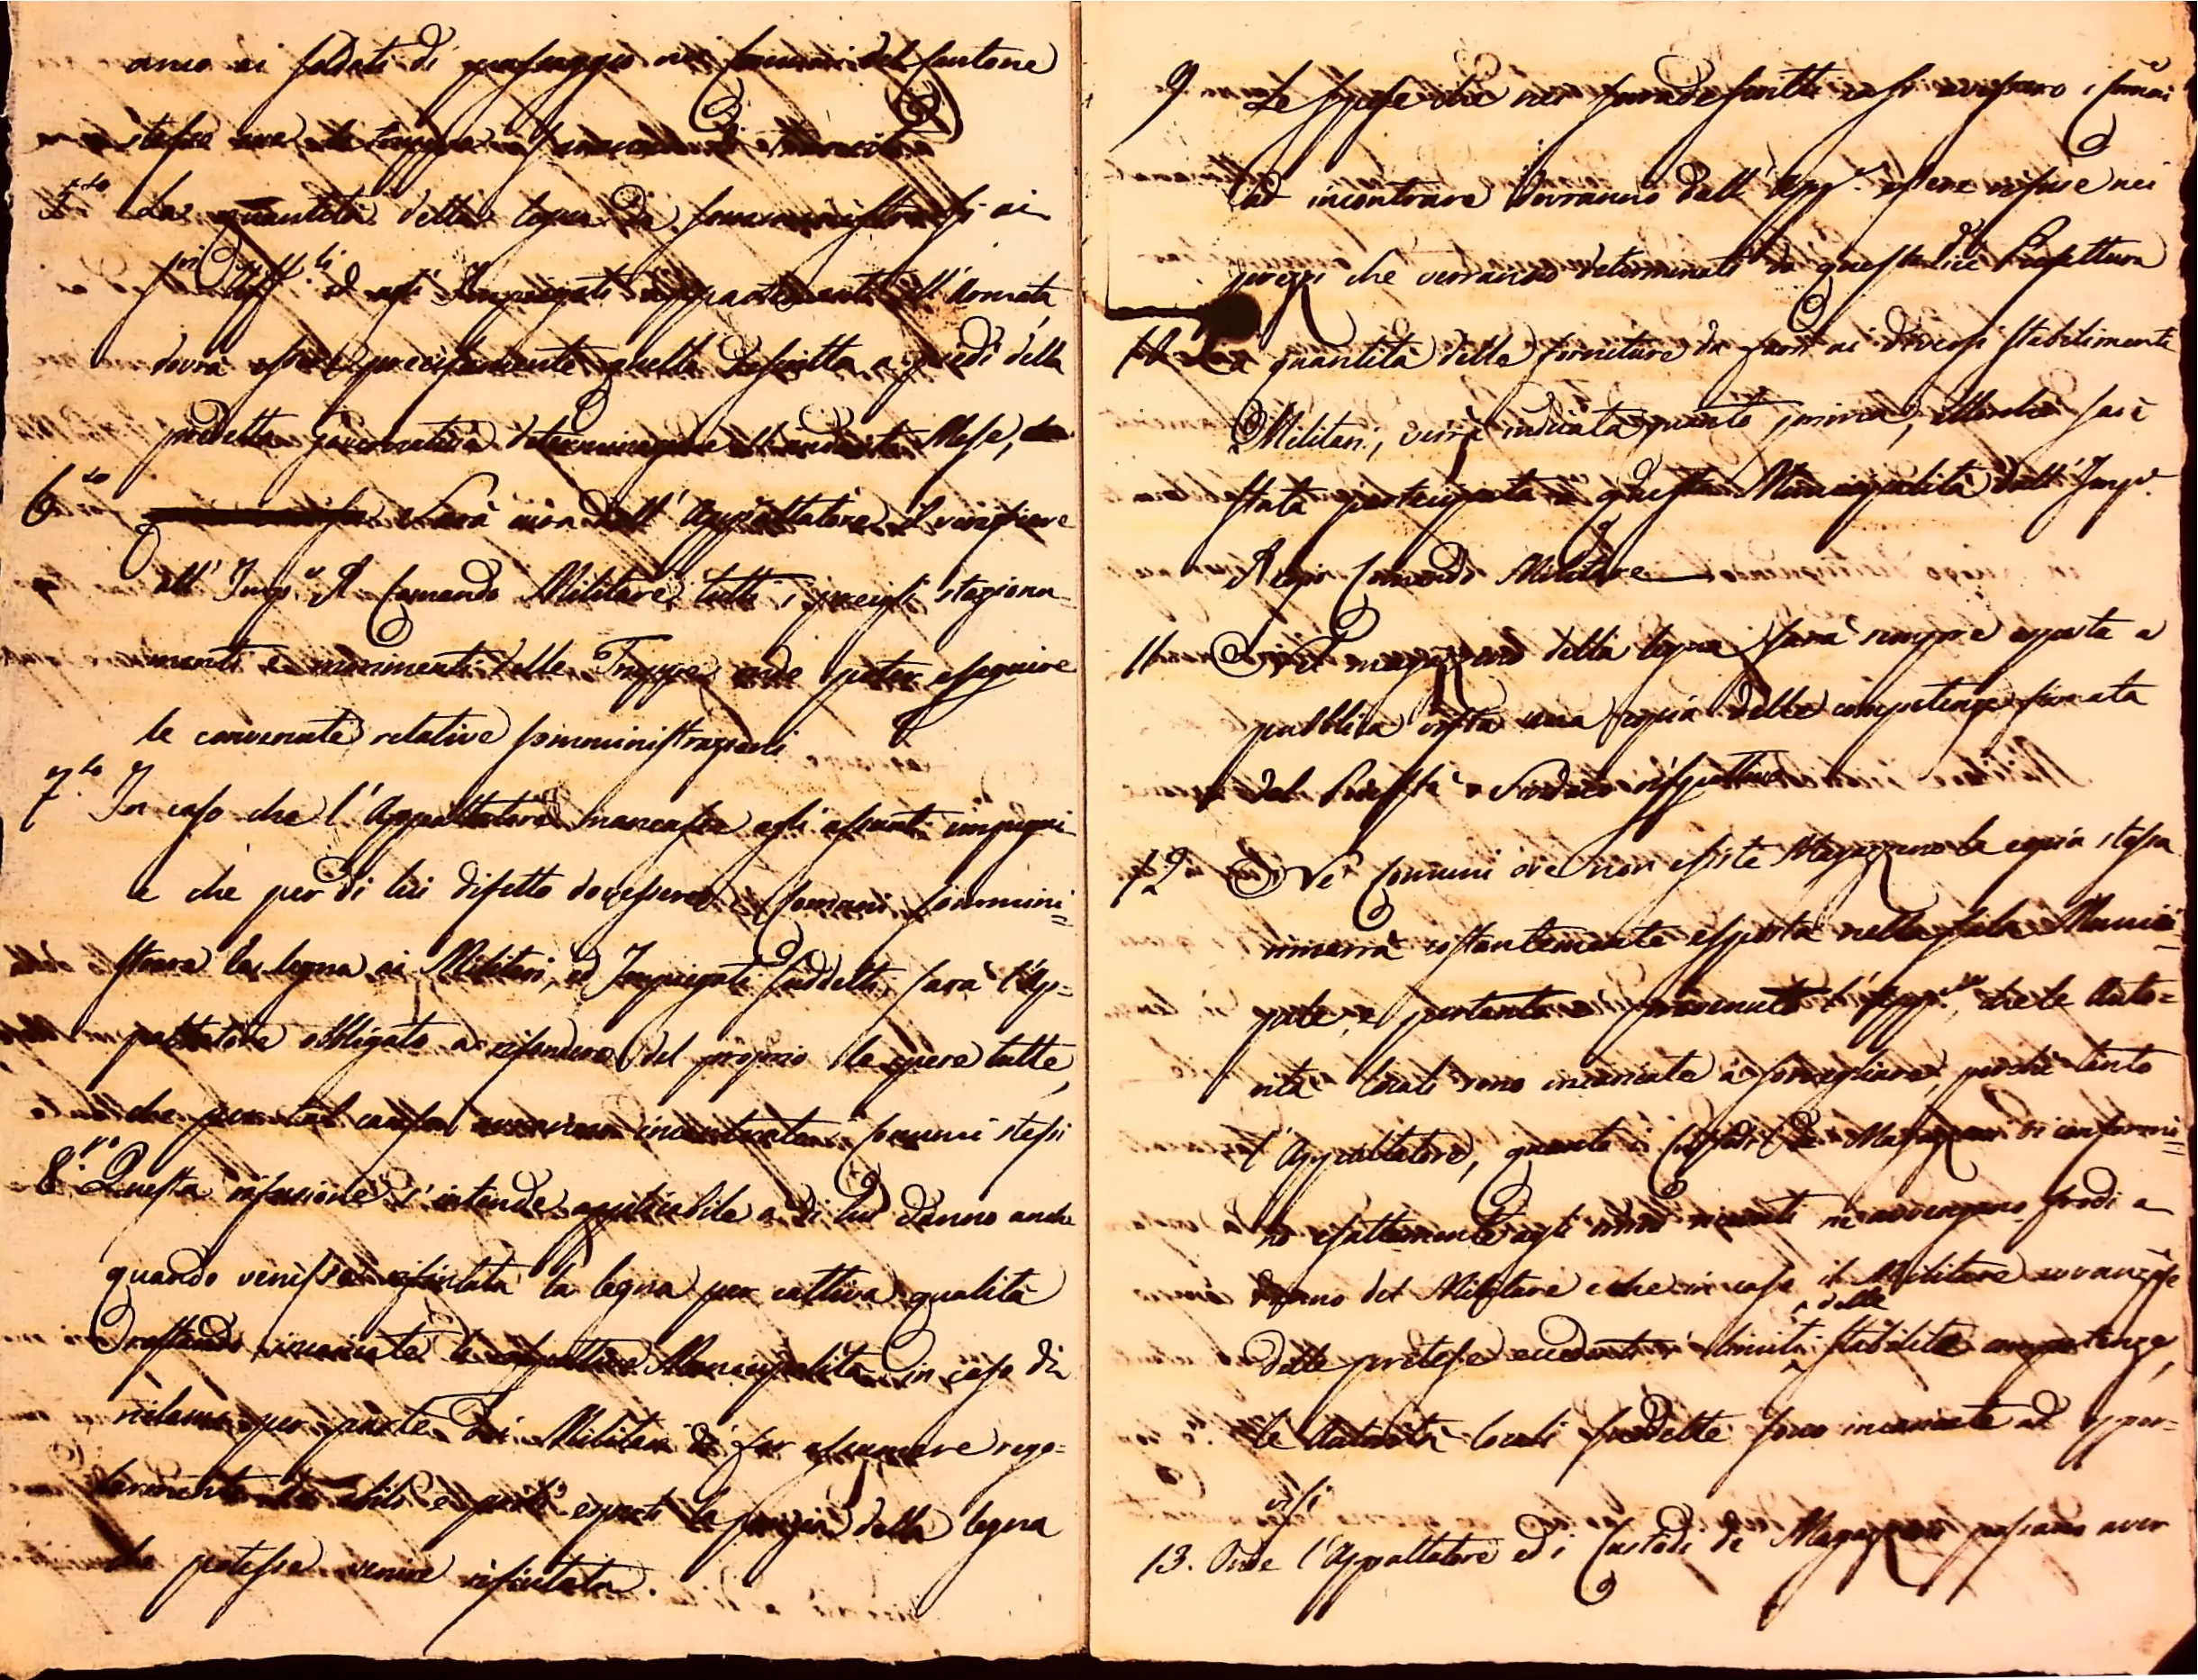 anco ai soldati di passaggio nei comuni del cantone
stesso
5.to La quantità della legna da somministrarsi ai
ed agl' Impiegati appartenenti all' Armata,
dovrà esser precisamente quella descritta a piedi della
predetta governativa determinazione
6.to Sarà cura dell' Appaltatore il verificare
all' Imp. R. Comando Militare tutti i precisi staziona-
menti e movimenti delle Truppe onde poter eseguire
le convenute relative somministrazioni
7.mo In caso che l' Appaltatore mancasse agli assunti impegni
e che per di lui difetto dovessero i Comuni sommini=
strare la legna ai Militari, ed Impiegati suddetti, sarà l'Ap=
paltatore obbligato a rifondere del proprio le spese tutte,
che per tal causa avranno incontrate i Comuni stessi
8.vo Questa rifusione s' intende applicabile a di lui danno anche
quando venisse rifiutata la legna per cattiva qualità
restando incaricate le rispettive Municipalità in caso di
reclamo per parte dei Militari di far esaminare rego=
larmente da abili e periti esperti la porzione della legna
che potesse venire rifiutata.
9. Le spese che nei suddescritti casi avessero i Comuni
ad incontrare dovranno dall' App.e essere rifuse nei
prezzi che verranno determinati da questa Prefettura
10. La quantità delle forniture da farsi ai diversi stabilimenti
Militari, verrà indicata quanto prima, allorchè sarà
stata partecipata a questa Municipalità dall' Imp.
Regio Comando Militare
11 Nel magazzeno della legna sarà sempre esposta a
pubblica vista una copia delle competenze firmata
dal Podestà o Sindaco rispettivo
12 Ne' Comuni ove non esiste Magazzeno la copia stessa
rimarrà costantemente esposta nella sala Munici=
pale, e pertanto prevenuto l' App.re, che le Auto=
rità locali sono incaricate a sorvegliare, perchè tanto
l' Appaltatore, quanto i Custodi de Magazzeni si conformi=
no esattamente agli ne avvengano frodi a
danno del Militare e che in caso il Militare avanzasse
delle pretese eccedenti i limiti delle stabilite competenze,
le Autorità locali suddette sono incaricate ad oppor=
visi
13. Onde l' Appaltatore ed i Custodi de Magazzeni possano aver